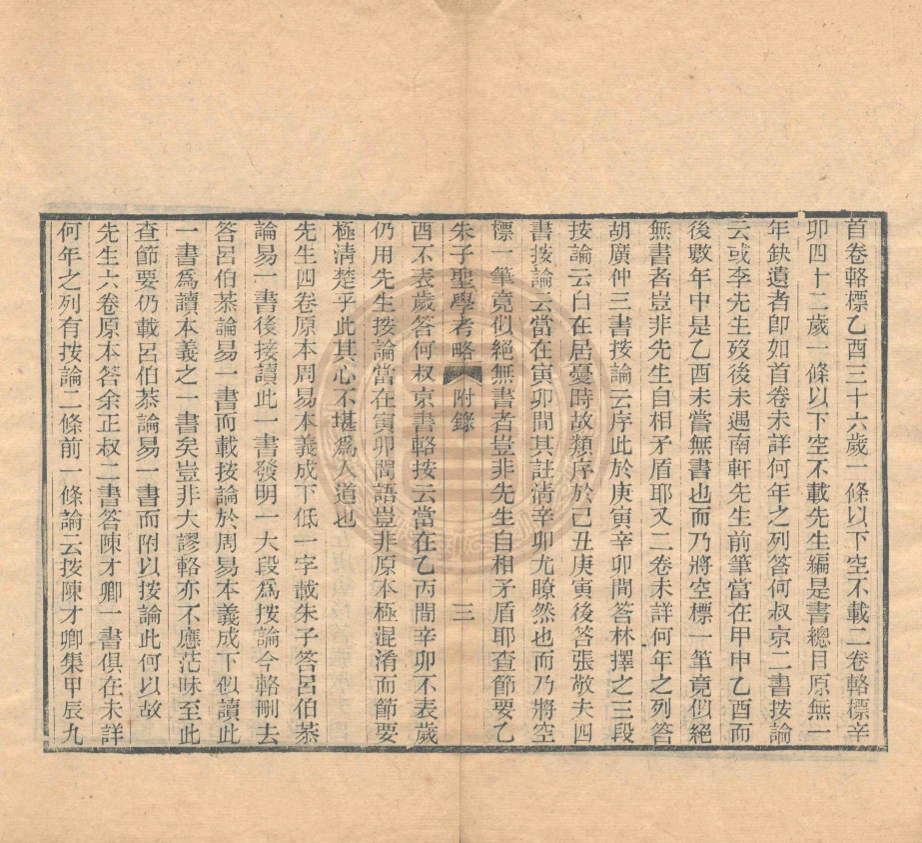 首卷輅標乙酉三十六歲一條以下空不載二卷輅標辛
卯四十二歲一條以下空不載先生編是書總目原無一
年缺遺者卽如首卷未詳何年之列答何叔京二書按論
云或李先生歿後未遇南軒先生前筆當在甲申乙酉而
後數年中是乙酉未嘗無書也而乃將空標一筆竟似絕
無書者豈非先生自相矛盾耶又二卷未詳何年之列答
胡廣仲三書按論云序此於庚寅辛卯間答林擇之三段
按論云白在居憂時故類序於己丑庚寅後答張敬夫四
書按論云當在寅卯間其註淸辛卯尤瞭然也而乃將空
標一筆竟似絕無書者豈非先生自相矛盾耶查節要乙
朱子聖學考略 附錄 三
酉不表歲答何叔京書輅按云當在乙丙間辛卯不表歲
仍用先生按論當在寅卯間語豈非原本極混淆而節要
極淸楚乎此其心不堪爲人道也
先生四卷原本周易本義成下低一字載朱子答呂伯恭
論易一書後接讀此一書發明一大段爲按論今輅刪去
答呂伯恭論易一書而載按論於周易本義成下似讀此
一書爲讀本義之一書矣豈非大謬輅亦不應茫昧至此
查節要仍載呂伯恭論易一書而附以按論此何以故
先生六卷原本答余正叔二書答陳才卿一書俱在未詳
何年之列有按論二條前一條論云按陳才卿集甲辰九